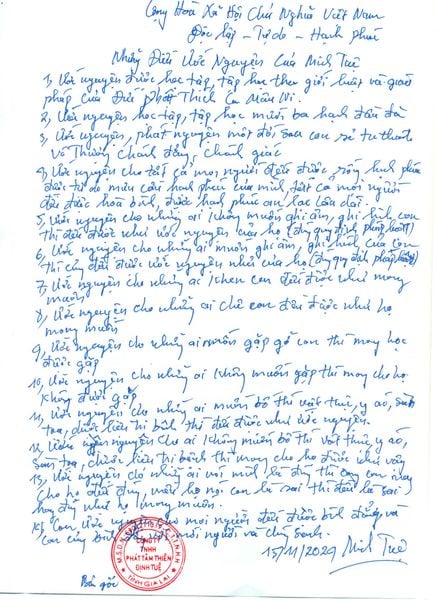 Cộng Hoà Xã Hội Chủ Nghĩa Việt Nam
Độc lập - Tự do - Hạnh phúc
Những Điều Ước Nguyện Của Minh Tuệ
1, Ước nguyện được học tập, tập học theo giới luật và giáo
pháp của Đức phật Thích Ca Mâu Ni.
2, Ước nguyện học tập, tập học mười ba hạnh đầu đà
3, Ước nguyện, phát nguyện một đời sau con sẽ tu thành
Vô Thượng Chánh đẳng, chánh giác
4, Ước nguyện cho tất cả mọi người đều được sống hạnh phúc
được tự do mưu cầu hạnh phúc của mình, tất cả mọi người
đều được hoà bình, được hạnh phúc an lạc lâu dài.
5, Ước nguyện cho những ai không muốn ghi âm, ghi hình con
thì đều được như ước nguyện của họ (đúng quy định pháp luật)
6, Ước nguyện cho những ai muốn ghi âm, ghi hình của con
thì cũng đều được ước nguyện như của họ (đúng quy định pháp luật)
7, Ước nguyện cho những ai khen con đều được như mong
muốn
8, Ước nguyện cho những ai chê con đều được như họ
mong muốn
9, Ước nguyện cho những ai muốn gặp gỡ con thì mong họ
được gặp
10, Ước nguyện cho những ai không muốn gặp thì mong cho họ
không được gặp
11, Ước nguyện cho những ai muốn bố thí vật thực, y áo, sàng
toạ, dược liệu trị bệnh thì đều được như ước nguyện.
12, Ước nguyện cho những ai không muốn bố thí vật thực y áo,
sàng toạ, dược liệu trị bệnh thì mong cho họ được như vậy
13, Ước nguyện cho những ai nói mình là đúng thì con mong
cho họ đều đúng, nếu họ nói con là sai thì đều là sai
hay đúng như họ mong muốn.
14, Con ước nguyện cho mọi người đều được bình đẳng và
con cũng bình đẳng với mọi người và chúng sanh.
15/11/2024 Minh Tuệ
CÔNG TY
TNHH
PHÁT TÂM THIỀN
ĐỊNH TUỆ
TỈNH GIA LAI
Bản gốc